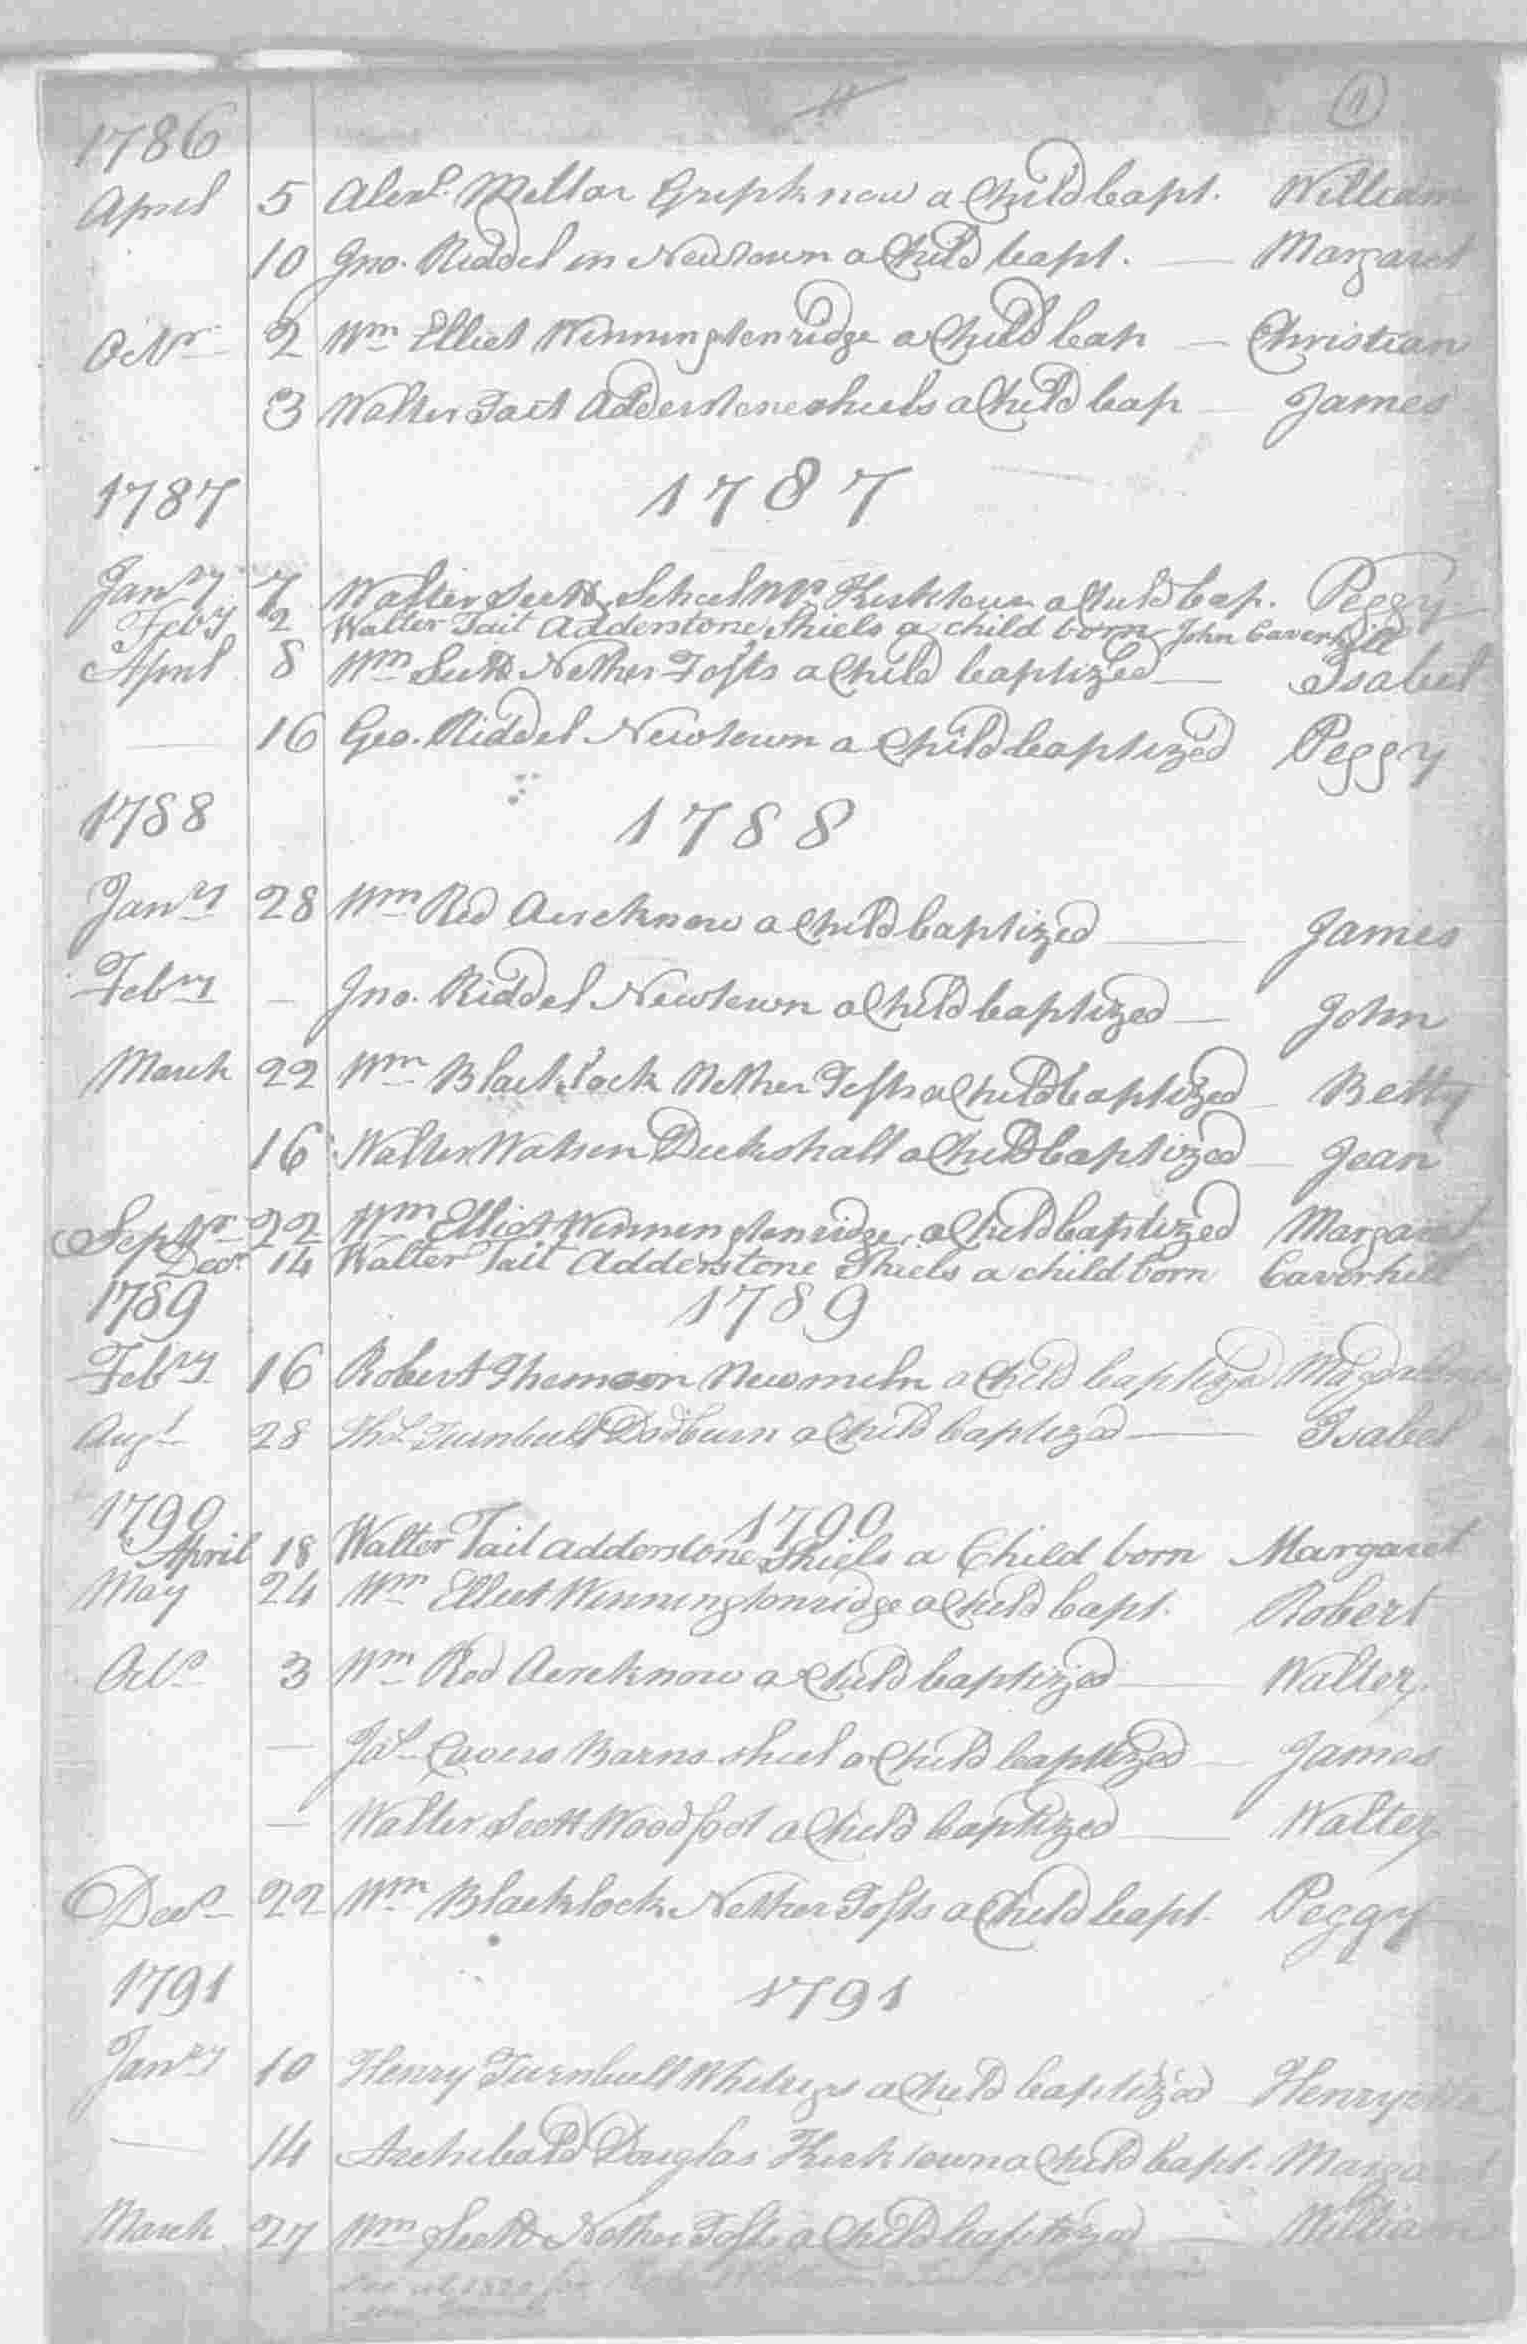 11
1786
April 5 Alexr. Mellar Grepknow a Child bapt. William
10 Jno. Riddel in Newtown a Child bapt. — Margaret
Octr. 2 Wm Elliot Winningtonridge a Child bap — Christian
3 Walter Tait Adderstonesheels a Child bap — James
1787 1787
Janry 7 Walter Scott Schoolmr Kirktown a Child bap. Peggy
Febry 2 Walter Tait Adderstone Shiels a child born John Caverhill
April 8 Wm Scott Nether Tofts a Child baptized — Isabel
16 Geo. Riddel Newtown a Child baptized Peggy
1788 1788
Janry 28 Wm Red Acreknow a Child baptized — James
Febry — Jno. Riddel Newtown a Child baptized — John
March 22 Wm Blacklock Nether Tofts a Child baptized — Betty
16 Walter Watson Deekshall a Child baptized — Jean
Septr 22 Wm Elliot Winningtonridge a Child baptized Margaret
Decr 14 Walter Tait Adderstone Shiels a child born Caverhill
1789 1789
Febry 16 Robert Thomson Newmeln a Child baptized Magdalene
Augt 28 Thos. Turnbull Dodburn a Child baptized — Isabel
1790 1790
April 18 Walter Tait adderstone Shiels a Child born Margaret
May 24 Wm Elliot Winningtonridge a Child bapt. Robert
Octr 3 Wm Red Acreknow a Child baptized — Walter
— Jas. Cavers Barns sheel a Child baptized — James
— Walter Scott Woodfoot a Child baptized — Walter
Decr 22 Wm Blacklock Nether Tofts a Child bapt. Peggy
1791 1791
Janry 10 Henry Turnbull a Child baptized Henry
— 14 Archibald Douglas Kirktown a Child bapt. Margaret
March 27 Wm Scott Nether Tofts a Child baptized — William